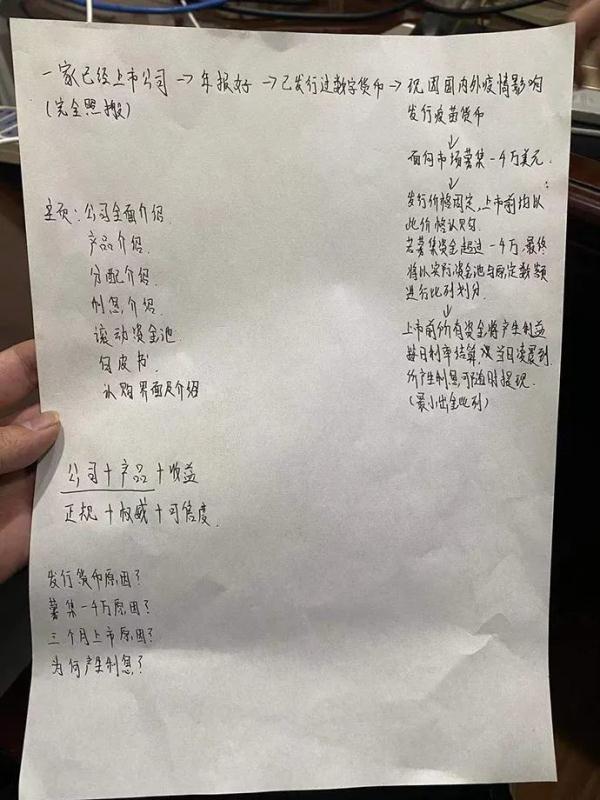 一家已经上市公司→年报好→已发行过数字货币→现因国内外疫情影响
(完全照搬)
发行疫苗货币
↓
面向市场募集一千万美元.
↓
发行价格固定,上市前均以
此价格认购.
若募集资金超过一千万,最终
将以实际资金池与原定数额
进行比列划分.
↓
上市前所有资金将产生利益
每日利率结算,次日凌晨到
所产生利息,可随时提现.
(最小出金比列)
主页:公司全面介绍.
产品介绍.
分配介绍.
利息介绍.
滚动资金池.
白皮书.
认购界面及介绍
公司+产品+收益
正规+权威+可信度.
发行货币原因?
募集一千万原因?
三个月上市原因?
为何产生利息?